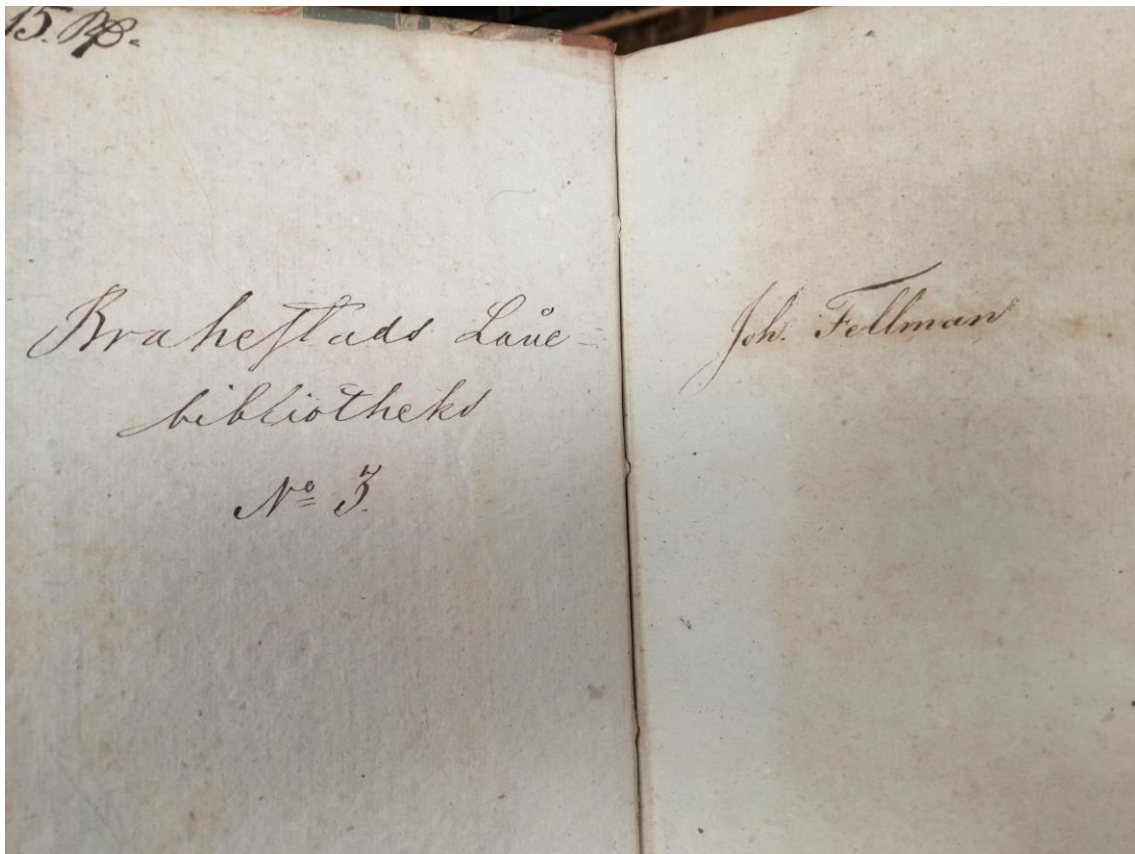 15.
Brahestads Låne-
bibliotheks
No 3.
Joh. Fellman